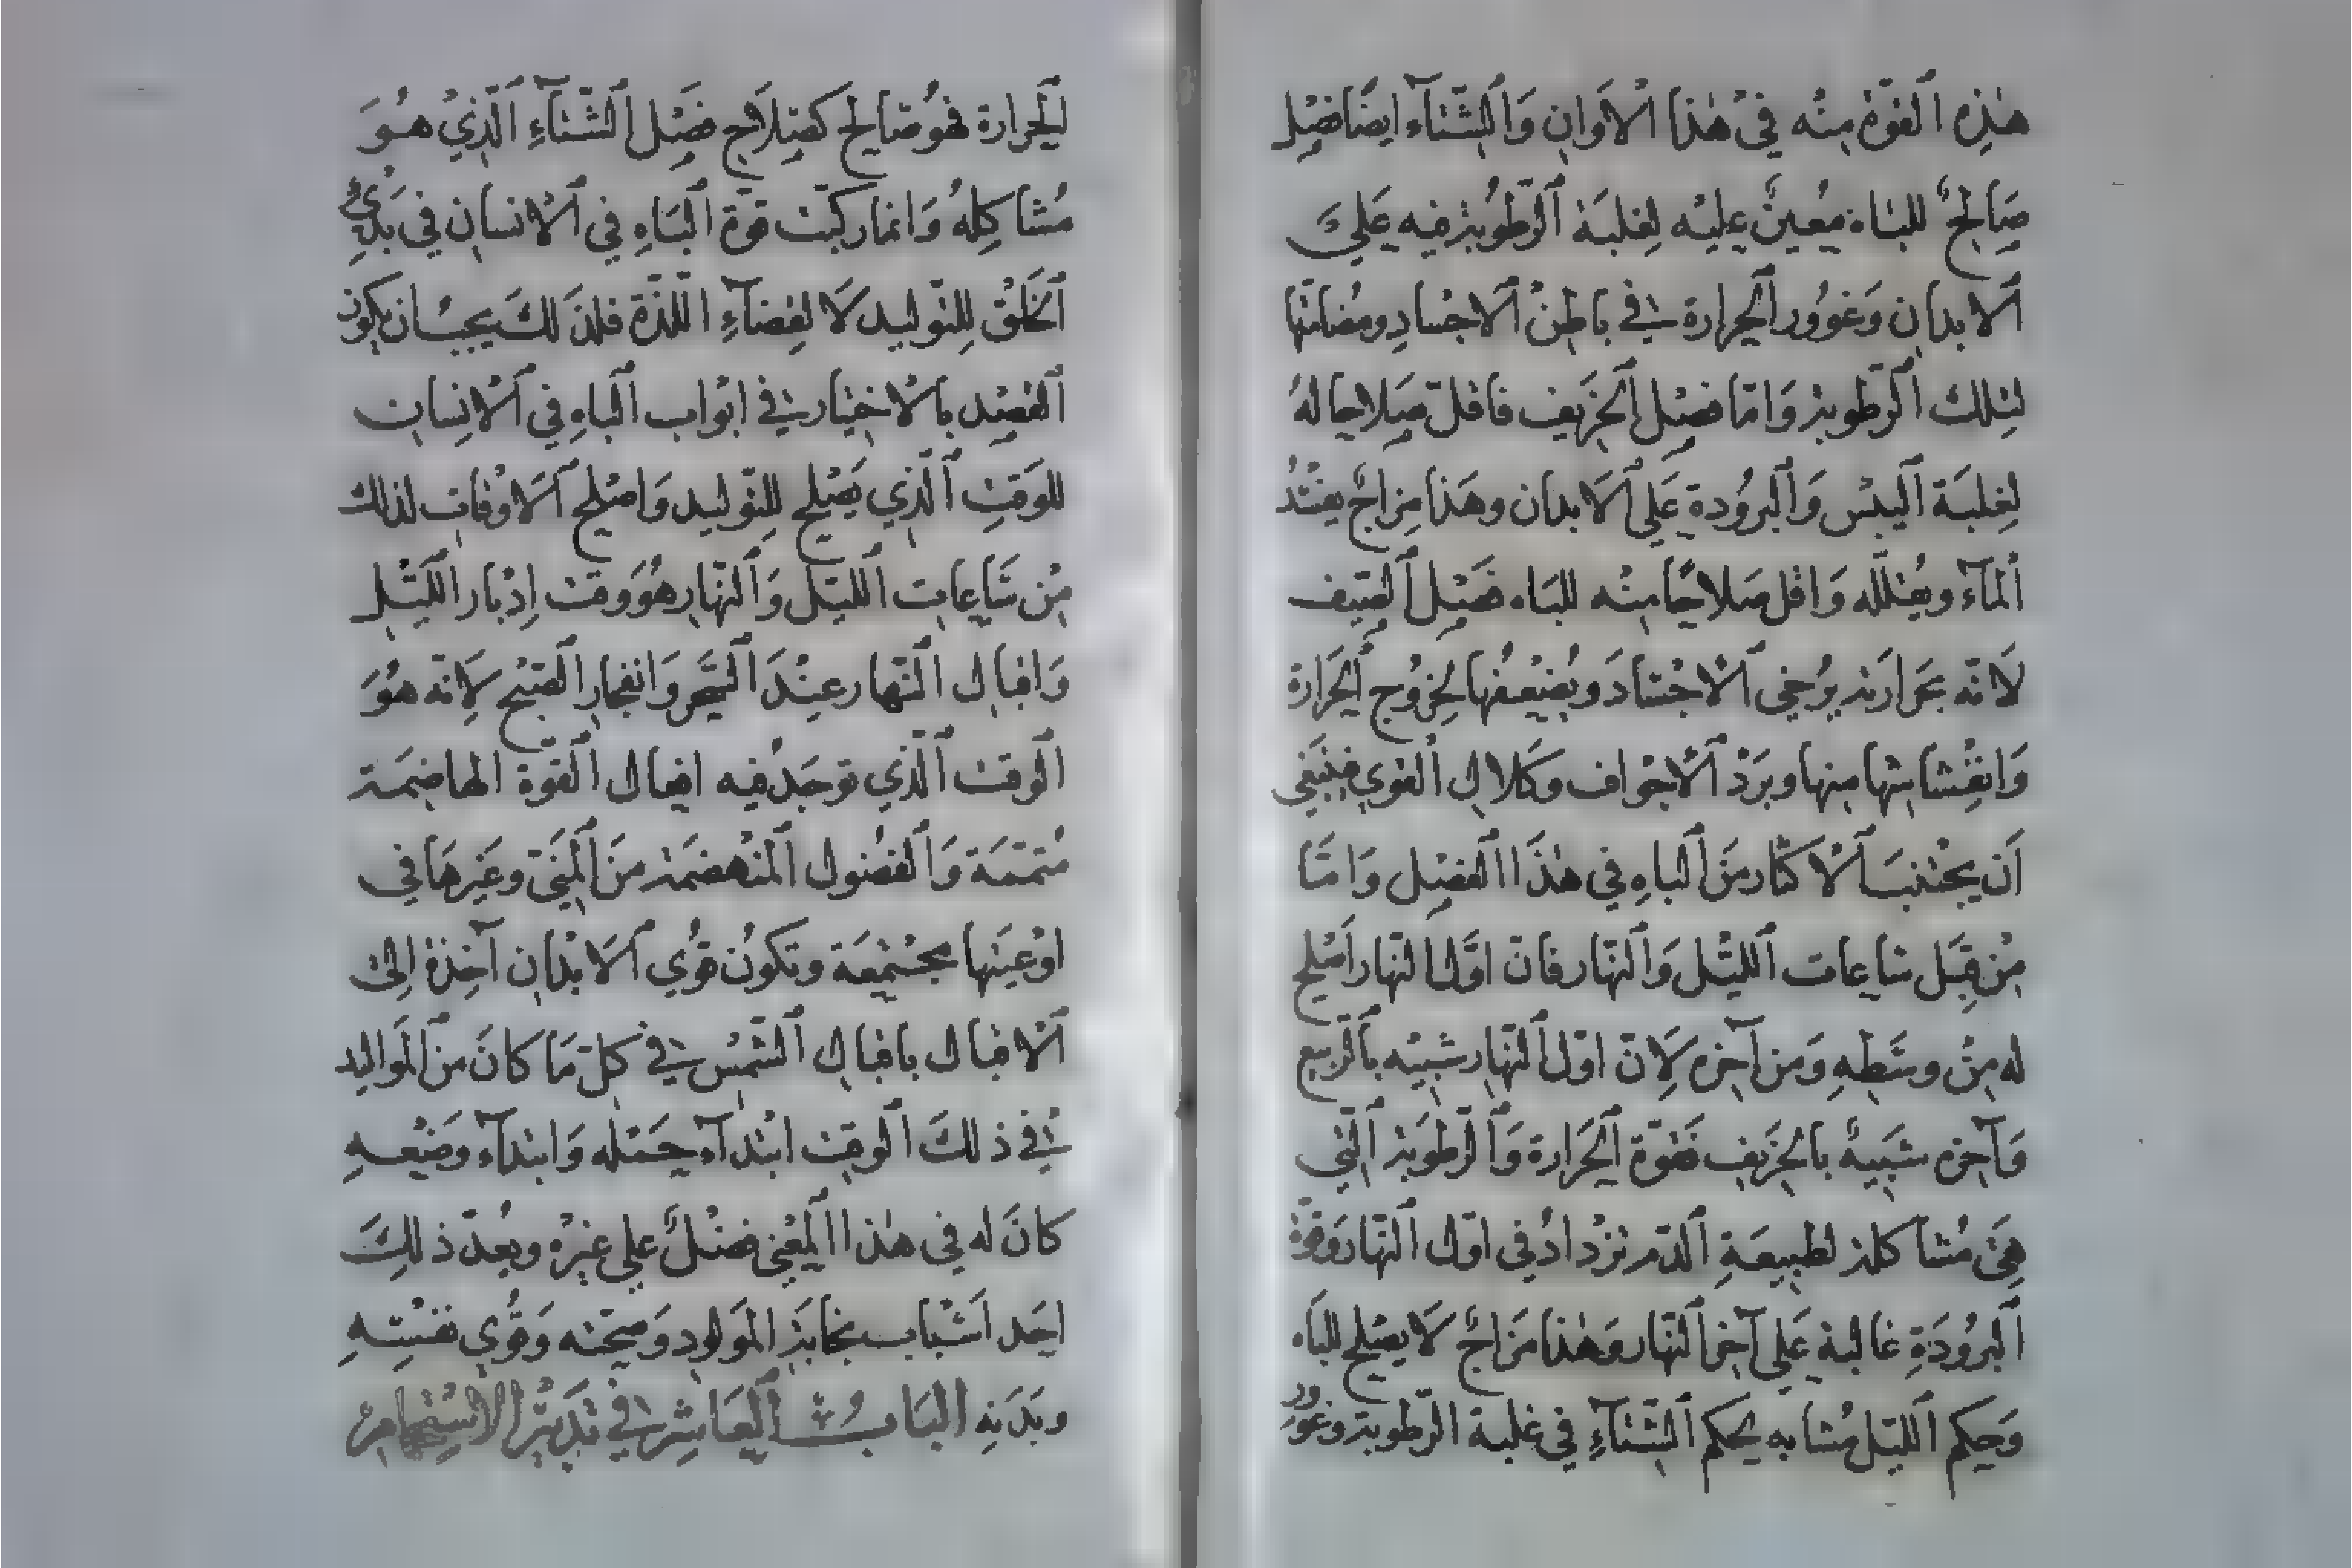 هٰذِهِ ٱلقوّة مِنْه فِي هٰذا ٱلاَوانِ وَٱلشّتآء ايضًا فصْل
صَالِحٌ للبَاه مُعينٌ عليْه لِغلبَة ٱلرّطُوبة فيه عَليَ
ٱلابدان وَغوُور ٱلحرارة في باطِنْ ٱلاجْسادِ ومضادّتها
لتِلك ٱلرّطوبة وَامّا فصْل ٱلخَريف فاقلّ صَلاحا لهُ
لِغلبَة ٱليبْس وَٱلبرُودة عَلى ٱلاَبدان وهَذا مِزاجٌ يفسُد
ٱلمآء ويُقلّله وَاقل صَلاحًا مِنْه للبَاه فصْل ٱلصّيف
لاَنّه بحَرارته يُرخي ٱلاجْسادَ ويُضْعِفُها لِخرُوج ٱلحَرارة
وَانفِشاشها مِنها وبَرْد ٱلاجْواف وكَلال ٱلقوي فينبَغي
اَن يجْتنبَ ٱلاكثار مَن ٱلباهِ في هٰذَا ٱلفصْل وَامّا
مِنْ قِبَل سَاعات ٱلليْل وَٱلنّهار فانّ اوّل ٱلنّهار اَصْلح
له مِنْ وسَطِهِ وَمن آخره لاِنّ اوّل ٱلنّهار شبيْه بٱلرّبيع
وَآخره شبيهٌ بٱلخَريف فقوّة ٱلحَرارة وَٱلرّطوبة ٱلتّي
هِيَ مُشاكلة لطبيعَةِ ٱلدّم تزْدادُ في اوّل ٱلنّهار وَقوّة
ٱلبرُودَةِ غالبة عَلى آخر ٱلنّهار وَهٰذا مَزاجٌ لاَ يصْلح للبَاه
وَحكم ٱلليْل مُشابه بحكم ٱلشّتآءِ في غلبة ٱلرّطوبة وغوُور
ٱلحَرارة فهوُ صَالح كصَلاَح فصْل ٱلشّتآءِ ٱلّذِيْ هوَ
مُشاكِلهُ وَانما ركبّت قوّة ٱلبَاهِ في ٱلانسان في بَدْيِ
ٱلخَلق لِلتّوليد لاَ لِقضآءِ ٱللّذّة فلذلكَ يجبُ ان يكون
ٱلقصْد بٱلاختيار في ابْواب ٱلباهِ في ٱلانِسان
للوَقتِ ٱلّذي يَصْلح للتّوليد وَاصْلح ٱلاَوْقات لذلك
مِن سَاعات ٱلليْل وَٱلنّهار هوُ وَقت اِدْبار ٱللّيْل
وَاقبال ٱلنّهار عِنْدَ ٱلسّحَر وَانفجار ٱلصّبْح لاِنّه هوَ
ٱلوقت ٱلّذي توجَدُ فيه افعال ٱلقوّة الهاضِمَة
مُتمّمَة وَٱلفضُول ٱلمنْهضمَة مَن ٱلمَنيّ وغَيرهَا في
اوْعيَتها مجْتمِعَة وتكوُن قوُي ٱلاَبْدان آخِذة اِليَ
ٱلاقبال باقبال ٱلشّمْس في كلّ مَا كانَ مَن ٱلمَواليد
في ذلكَ ٱلوقت ابْتدآء حَمْله وَابتدآء وَضْعهِ
كانَ له في هٰذا ٱلمعْني فضْلٌ علي غيرْه وبعُدّ ذلِكَ
احَد اَسْبَاب نجابَة المَولود وَصحّته وَقُوي نفْسِهِ
وبَدَنِهِ البَابُ ٱلعَاشِر في تَدْبيْر ٱلاسْتِحْمامِ